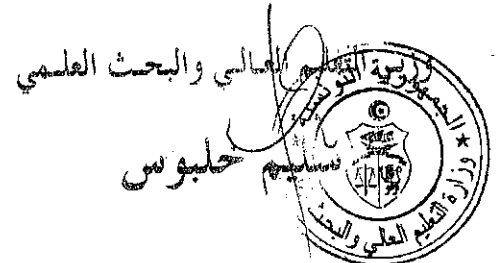 وزير التعليم العالي والبحث العلمي
سليم خلبوس
الجمهورية التونسية
★ وزارة التعليم العالي والبحث